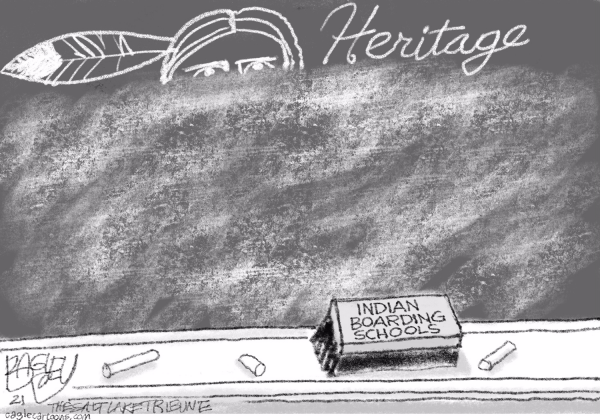 Heritage
INDIAN
BOARDING
SCHOOLS
BAGLEY
21
THE SALT LAKE TRIBUNE
caglecartoons.com